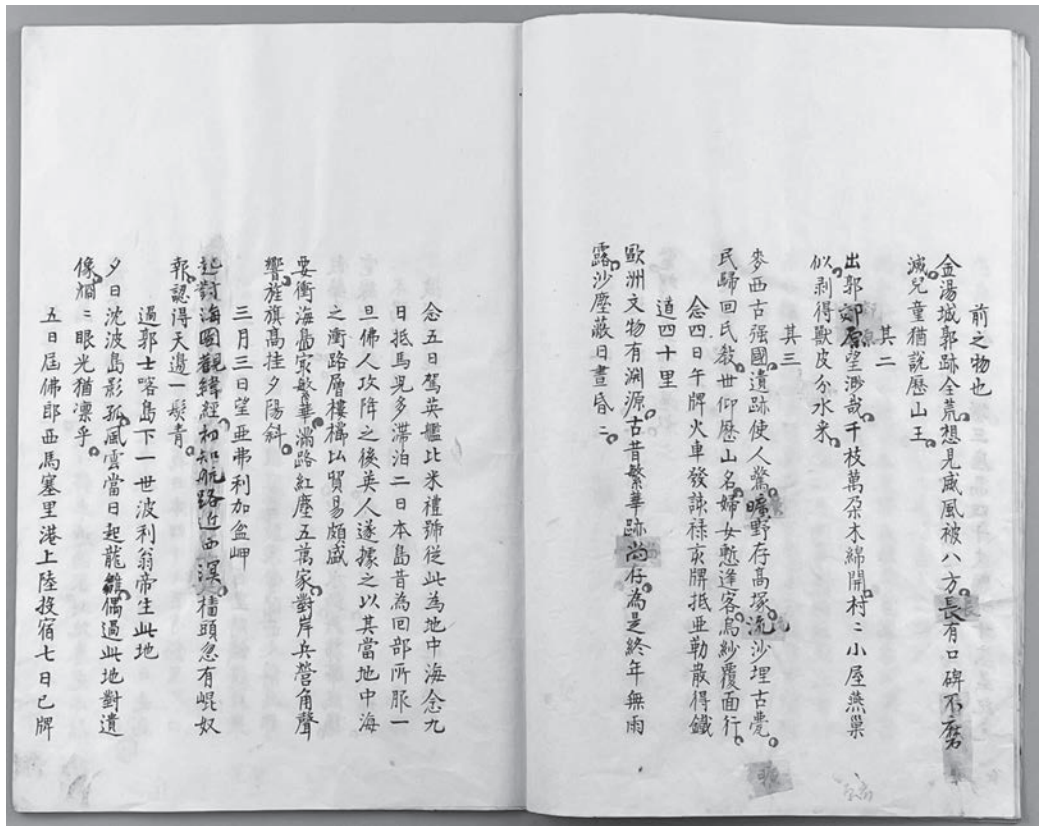 前之物也
金湯城郭跡全荒想見威風被八方長有口碑不磨
滅兒童猶說歷山王
其二
出郭郊原望渺哉千枝萬朶木綿開村〻小屋燕巢
似剥得獸皮分水来
其三
麥西古强國遺跡使人驚曠野存高塚流沙埋古甍
民歸回氏敎世仰歷山名婦女慙逢客烏紗覆面行
念四日午牌火車發該禄亥牌抵亜勒散得鐵
道四十里
歐洲文物有淵源古昔繁華跡尚存為是終年無雨
露沙塵蔽日晝昏〻
念五日駕英艦比米禮號從此為地中海念九
日抵馬児多滞泊二日本島昔為回部所服一
旦佛人攻降之後英人遂據之以其當地中海
之衝路層樓櫛比貿易頗盛
要衝海島家繁華滿路紅塵五萬家對岸兵營角聲
響旌旗高挂夕陽斜
三月三日望亜弗利加盆岬
起對海圖觀緯經初知航路近西溟檣頭忽有崐奴
報認得天邊一髪青
過郭士喀島下一世波利翁帝生此地
夕日沈波島影孤風雲當日起龍雛偶過此地對遺
像烱〻眼光猶凛乎
五日屆佛郎西馬塞里港上陸投宿七日巳牌